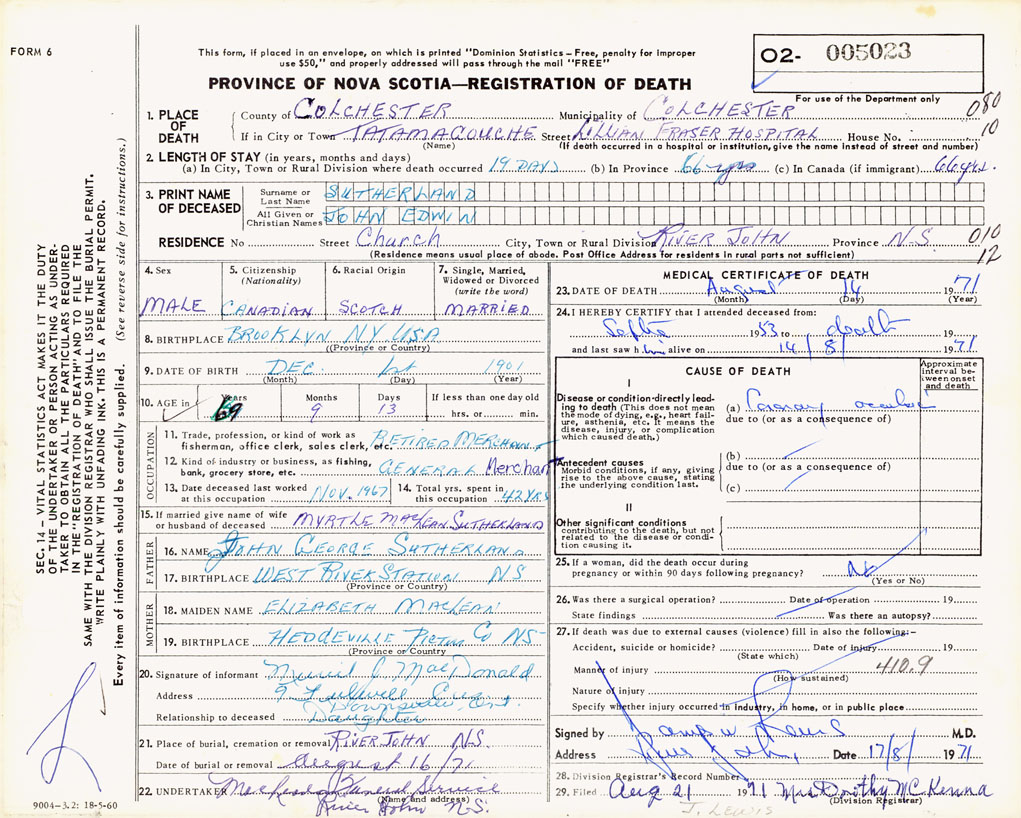 FORM 6
This form, if placed in an envelope, on which is printed "Dominion Statistics – Free, penalty for improper
use $50," and properly addressed will pass through the mail "FREE"
O2- 005023
PROVINCE OF NOVA SCOTIA—REGISTRATION OF DEATH
For use of the Department only
1. PLACE OF DEATH
County of COLCHESTER Municipality of COLCHESTER 080
If in City or Town TATAMAGOUCHE Street LILLIAN FRASER HOSPITAL House No. 10
(Name) (If death occurred in a hospital or institution, give the name instead of street and number)
2. LENGTH OF STAY (in years, months and days)
(a) In City, Town or Rural Division where death occurred 19 DAYS (b) In Province 66 yrs (c) In Canada (if immigrant) 66 yrs.
3. PRINT NAME OF DECEASED
Surname or Last Name SUTHERLAND
All Given or Christian Names JOHN EDWIN
RESIDENCE No Street Church City, Town or Rural Division RIVER JOHN Province N.S. 010
(Residence means usual place of abode. Post Office Address for residents in rural parts not sufficient) 12
4. Sex
MALE
5. Citizenship
(Nationality)
CANADIAN
6. Racial Origin
SCOTCH
7. Single, Married,
Widowed or Divorced
(write the word)
MARRIED
8. BIRTHPLACE BROOKLYN N.Y. USA
(Province or Country)
9. DATE OF BIRTH DEC. 1st 1901
(Month) (Day) (Year)
10. AGE in Years Months Days If less than one day old
69 9 13 hrs. or min.
OCCUPATION
11. Trade, profession, or kind of work as
fisherman, office clerk, sales clerk, etc. RETIRED MERCHANT
12. Kind of industry or business, as fishing,
bank, grocery store, etc. GENERAL Merchant
13. Date deceased last worked
at this occupation NOV. 1967
14. Total yrs. spent in
this occupation 42 YRS
15. If married give name of wife
or husband of deceased MYRTLE MACKEAN SUTHERLAND
FATHER
16. NAME JOHN GEORGE SUTHERLAND
17. BIRTHPLACE WEST RIVER STATION NS
(Province or Country)
MOTHER
18. MAIDEN NAME ELIZABETH MACLEAN
19. BIRTHPLACE HEDDEVILLE PICTOU Co NS
(Province or Country)
20. Signature of informant J MacDonald
Address 9
Downsview, Ont.
Relationship to deceased Daughter
21. Place of burial, cremation or removal RIVER JOHN N.S.
Date of burial or removal August 16/71
22. UNDERTAKER Funeral Service
(Name and address)
River John N.S.
MEDICAL CERTIFICATE OF DEATH
23. DATE OF DEATH August 14 1971
(Month) (Day) (Year)
24. I HEREBY CERTIFY that I attended deceased from:
Septbr 1953 to death 19
and last saw him alive on 14/8/ 1971
CAUSE OF DEATH
Approximate
interval be-
tween onset
and death
I
Disease or condition directly lead-
ing to death (This does not mean
the mode of dying, e.g., heart fail-
ure, asthenia, etc. It means the
disease, injury, or complication
which caused death.)
(a) Coronary
due to (or as a consequence of)
Antecedent causes
Morbid conditions, if any, giving
rise to the above cause, stating
the underlying condition last.
(b)
due to (or as a consequence of)
(c)
II
Other significant conditions
contributing to the death, but not
related to the disease or condi-
tion causing it.
25. If a woman, did the death occur during
pregnancy or within 90 days following pregnancy? No
(Yes or No)
26. Was there a surgical operation? Date of operation 19
State findings Was there an autopsy?
27. If death was due to external causes (violence) fill in also the following:–
Accident, suicide or homicide? Date of injury 19
(State which)
Manner of injury 410.9
(How sustained)
Nature of injury
Specify whether injury occurred in industry, in home, or in public place
Signed by M.D.
Address River John Date 17/8/ 1971
28. Division Registrar's Record Number
29. Filed Aug 21 1971 Mrs Dorothy McKenna
(Division Registrar)
J. LEWIS
SEC. 14 – VITAL STATISTICS ACT MAKES IT THE DUTY
OF THE UNDERTAKER OR PERSON ACTING AS UNDER-
TAKER TO OBTAIN ALL THE PARTICULARS REQUIRED
IN THE "REGISTRATION OF DEATH" AND TO FILE THE
SAME WITH THE DIVISION REGISTRAR WHO SHALL ISSUE THE BURIAL PERMIT.
WRITE PLAINLY WITH UNFADING INK. THIS IS A PERMANENT RECORD.
Every item of information should be carefully supplied. (See reverse side for instructions.)
9004-3.2: 18-5-60